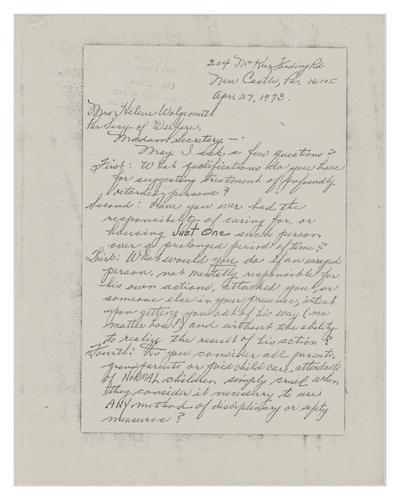 304 McKees Fording Rd.
New Castle, Pa. 16105
Apr. 27, 1973.
Mrs. Helene Wohlgemuth
Sec'y of Welfare.
Madam Secretary —
May I ask a few questions?
First: What qualifications do you have
for suggesting treatment of profoundly
retarded persons?
Second: Have you ever had the
responsibility of caring for, or
housing Just One such person
over a prolonged period of time?
Third: What would you do if an enraged
person, not mentally responsible for
his own actions, attacked you or
someone else in your presence, intent
upon getting you out of his way (no
matter how!) and without the ability
to realize the result of his action?
Fourth: Do you consider all parents,
grandparents or good child care attendants
of NORMAL children simply cruel when
they consider it necessary to use
ANY method of disciplinary or safety
measures?